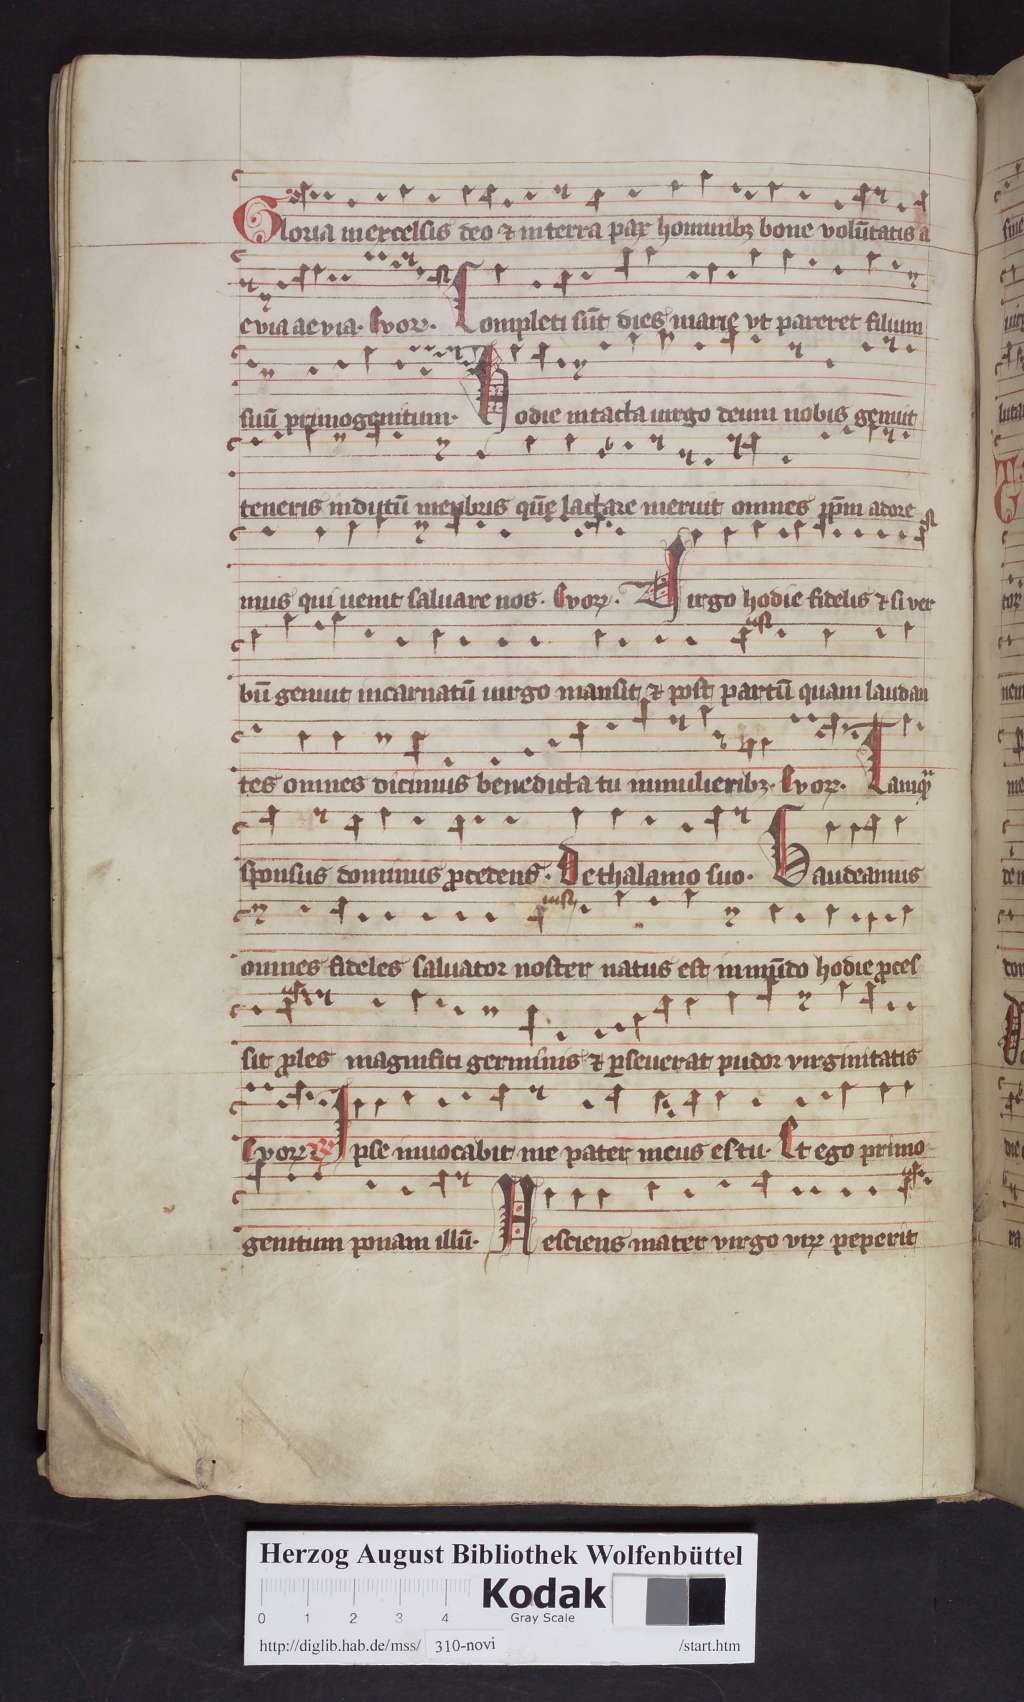 Gloria in excelsis deo ⁊ in terra pax hominibꝫ bone volūtatis a
evia aevia. Evoꝝ. Completi sūt dies marie vt pareret filium
suū primogenitum. Hodie intacta uirgo deum nobis genuit
teneris indutū menbris quē lactare meruit omnes xp̄m adore
mus qui uenit saluare nos. Evoꝝ. Virgo hodie fidelis ⁊ si ver
bū genuit incarnatū uirgo mansit ⁊ post partū quam laudan
tes omnes dicimus benedicta tu in mulieribꝫ. Evoꝝ. Tamqᷓ
sponsus dominus ꝓcedens. De thalamo suo. Gaudeamus
omnes fideles saluator noster natus est in mūdo hodie ꝓces
sit ꝓles magnifici germinis ⁊ ꝑseuerat pudor virginitatis
Evoꝝ Ipse inuocabit me pater meus es tu. Et ego primo
genitum ponam illū. Nesciens mater virgo viꝝ peperit
Herzog August Bibliothek Wolfenbüttel
Kodak
Gray Scale
0 1 2 3 4
http://diglib.hab.de/mss/ 310-novi /start.htm